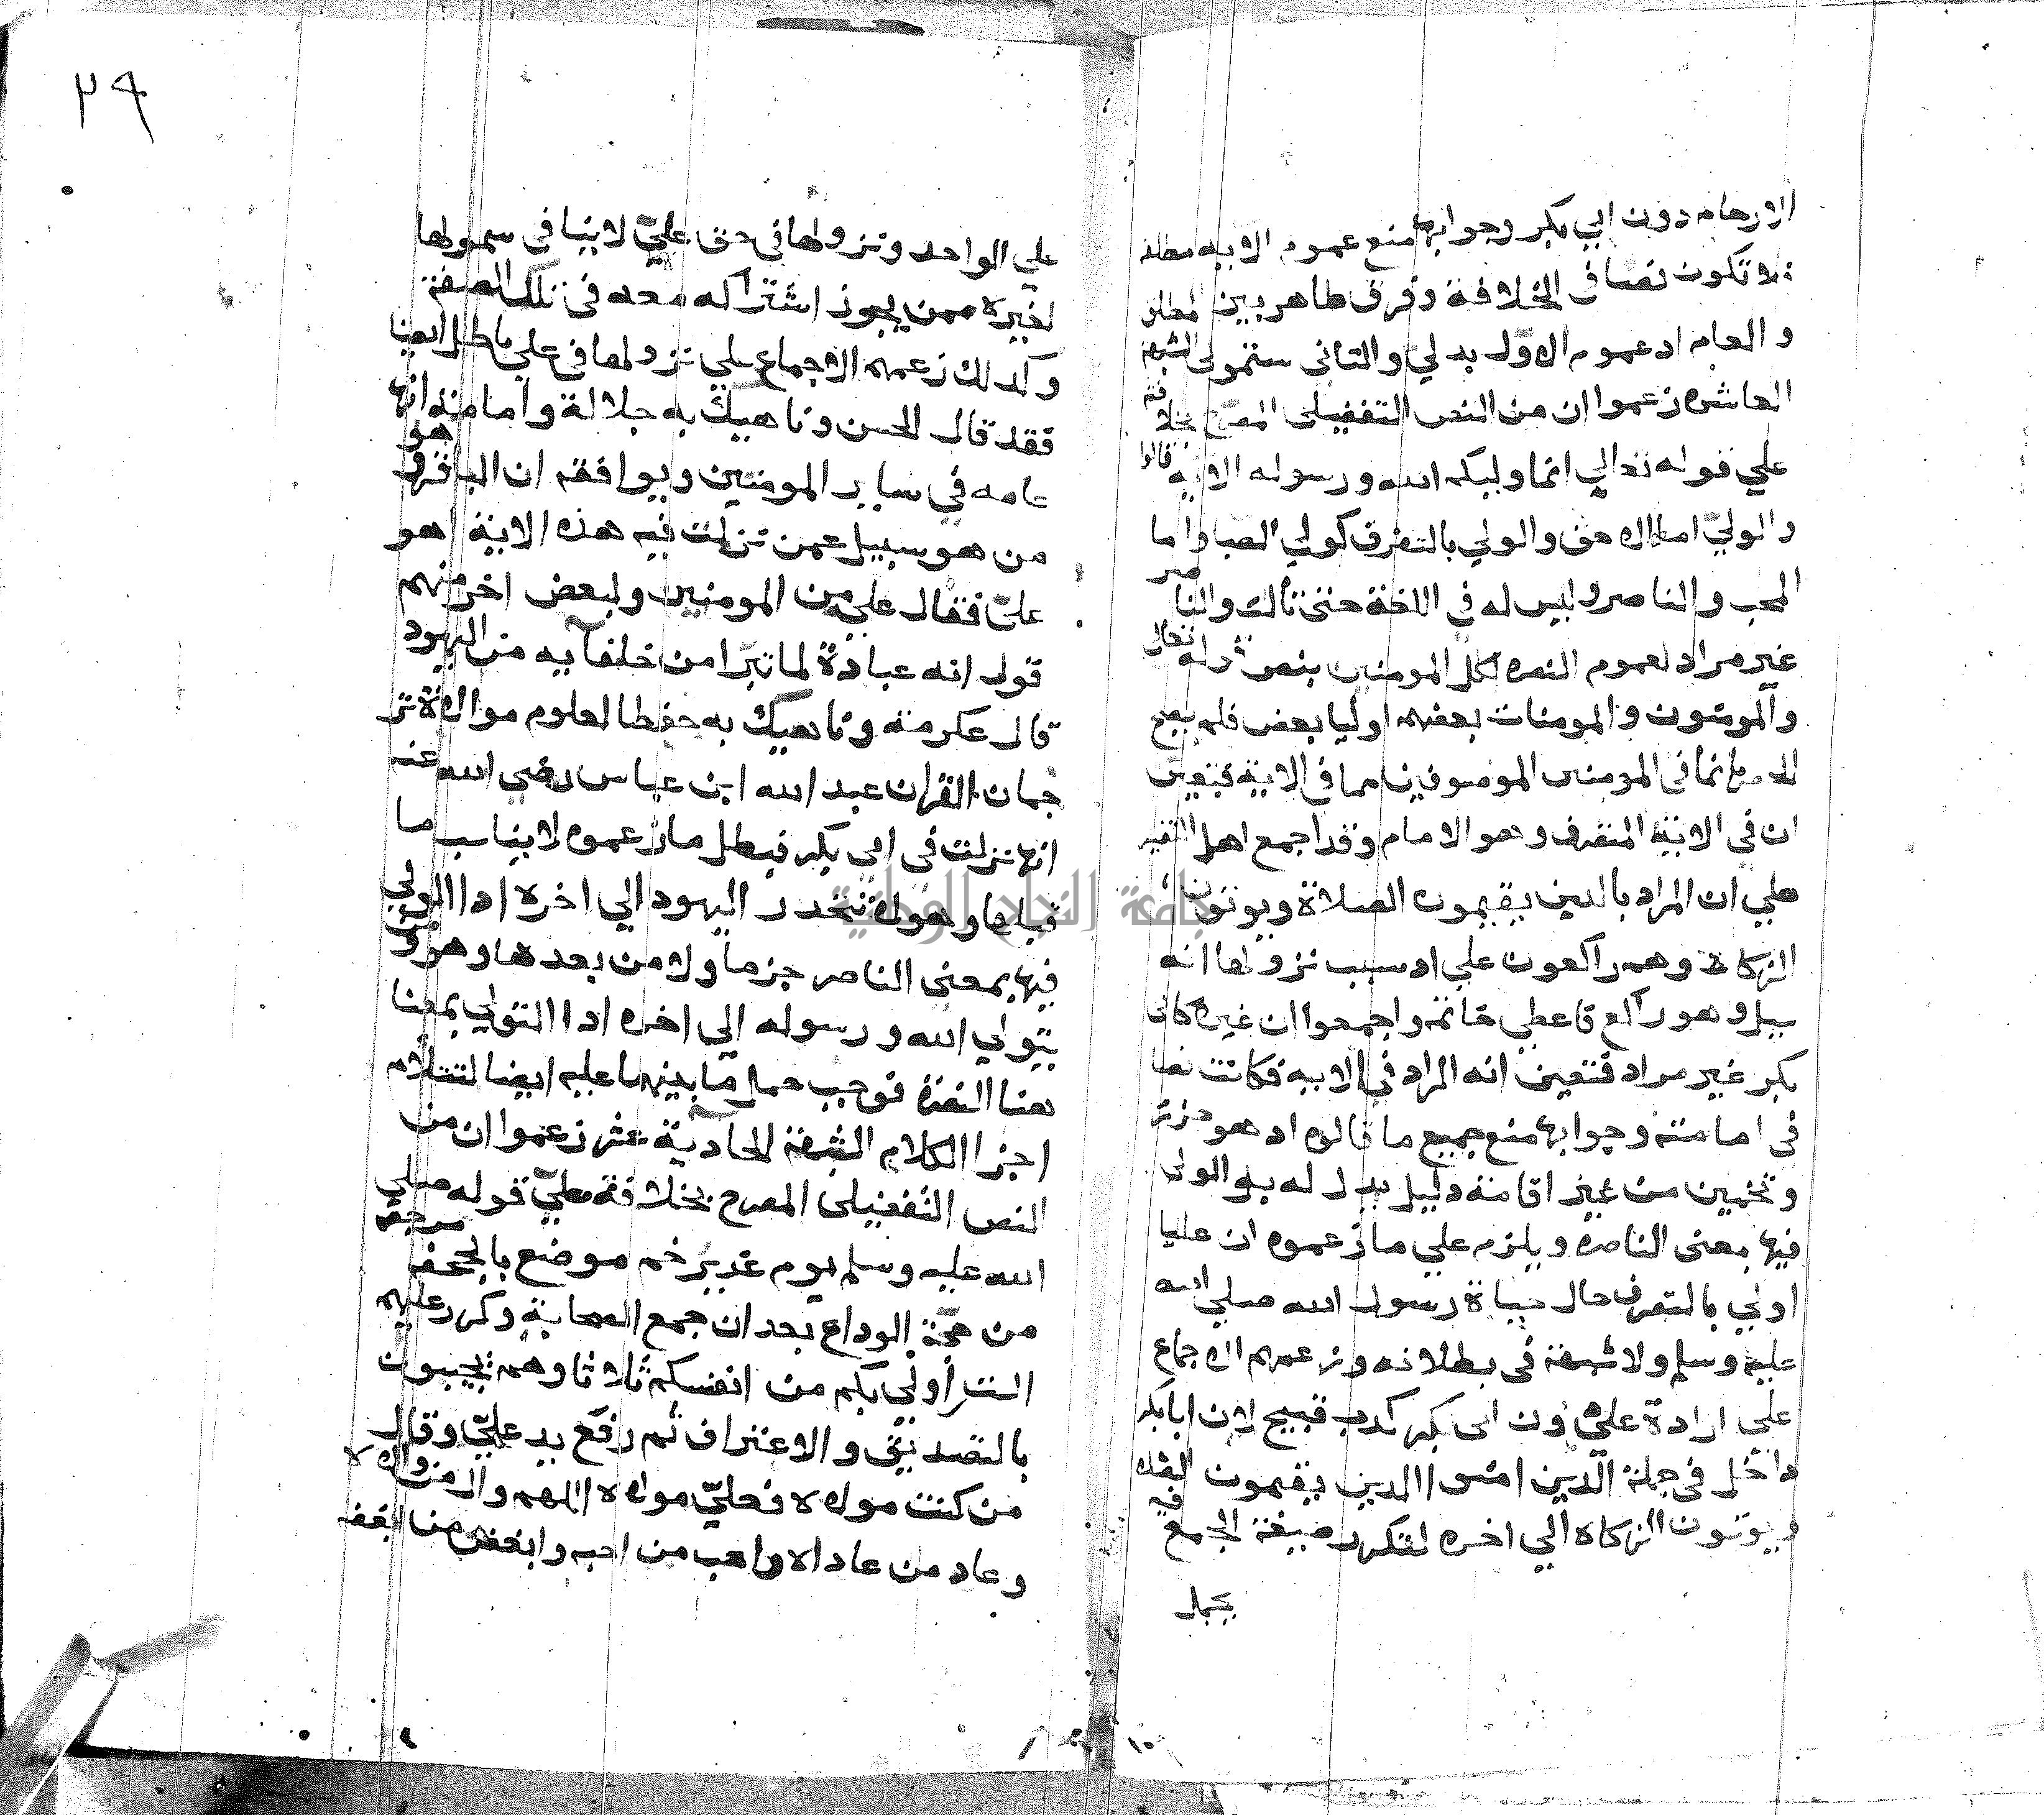 الارحام دون ابي بكر وجوابها منع عموم الايه مطلقا
فلا تكون نصا في الخلافة وفرق ظاهر بين المطلق
والعام اد عموم الاول بدلي والتانى شمولى الشبهة
العاشره زعموا ان من النص التفصيلى المصرح بخلافة
علي قوله تعالي انما وليكم الله ورسوله الايه قالوا
والولي اما الاحق والولي بالتصرف كولي الصبا واما
المحب والناصر وليس له في اللغة معنى ثالث والناصر
غير مراد لعموم النصره لكل المومنين بنص قوله تعالى
والمومنون والمومنات بعضهم اوليا بعض فلم يصح
الحصر بانما فى المومنين الموصوفين بما فى الاية فتعين
ان فى الاية المتصرف وهو الامام وقد اجمع اهل التفسير
علي ان المراد بالدين يقيمون الصلاة ويوتون
الزكاة وهم راكعون علي اد سبب نزولها انه
سيل وهو راكع فاعطي خاتمه واجمعوا ان غيره كابى
بكر غير مراد فتعين انه المراد في الايه فكانت نصا
في امامته وجوابها منع جميع ما قالوه اد هو حزر
وتخمين من غير اقامة دليل يدل له بل الولى
فيها بمعنى الناصر ويلزم علي ما زعموه ان عليا
اولي بالتصرف حال حياة رسول الله صلي الله
عليه وسلم ولا شبهة في بطلانه وزعمهم الاجماع
على ارادة علي دون ابى بكر كدب قبيح لان ابا بكر
داخل فى جملة الدين امنوا الدين يقيمون الصلاة
ويوتون الزكاه الي اخره لتكرر صيغة الجمع فيه
يحمل
٣٩
علي الواحد ونزولها فى حق علي لا ينافي شمولها
لغيره ممن يجوز اشتراكه معه في تلك الصفة
وكدلك زعمهم الاجماع علي نزولها في علي باطل ايضا
فقد قال الحسن وناهيك به جلالة وامامة انها
عامه في ساير المومنين ويوافقه ان الباقر وهو
من هو سيل عمن نزلت فيه هذه الاية اهو
علي فقال علي من المومنين ولبعض اخر منهم
قول انه عبادة لما تبرا من خلفآيه من اليهود
قال عكرمة وناهيك به حفظا لعلوم مولاه تر
جمان القران عبد الله ابن عباس رضي الله عنه
انها نزلت في ابي بكر فبطل ما زعموه لا يناسب ما
قبلها وهو لا تتخدو اليهود الي اخره ادا الولي
فيها بمعنى الناصر جزما ولا من بعدها وهو ومن
يتولي الله ورسوله الي اخره ادا التولي بمعنا
بعنا النصرة فوجب حمل ما بينهما عليه ايضا لتتلام
اجزا الكلام الشبهة الحادية عشر زعموا ان من
النص التفضيلى المصرح بخلافة علي قوله صلي
الله عليه وسلم يوم غدير خم موضع بالجحفه مرجعه
من حجة الوداع بعد ان جمع الصحابة وكرر عليهم
الست أولي بكم من انفسكم ثلاثا وهم يجيبون
بالتصديق والاعتراف ثم رفع يد علي وقال
من كنت مولاه فعلي مولاه اللهم وال من والاه
وعاد من عاداه واحب من احبه وابغض من ابغضه